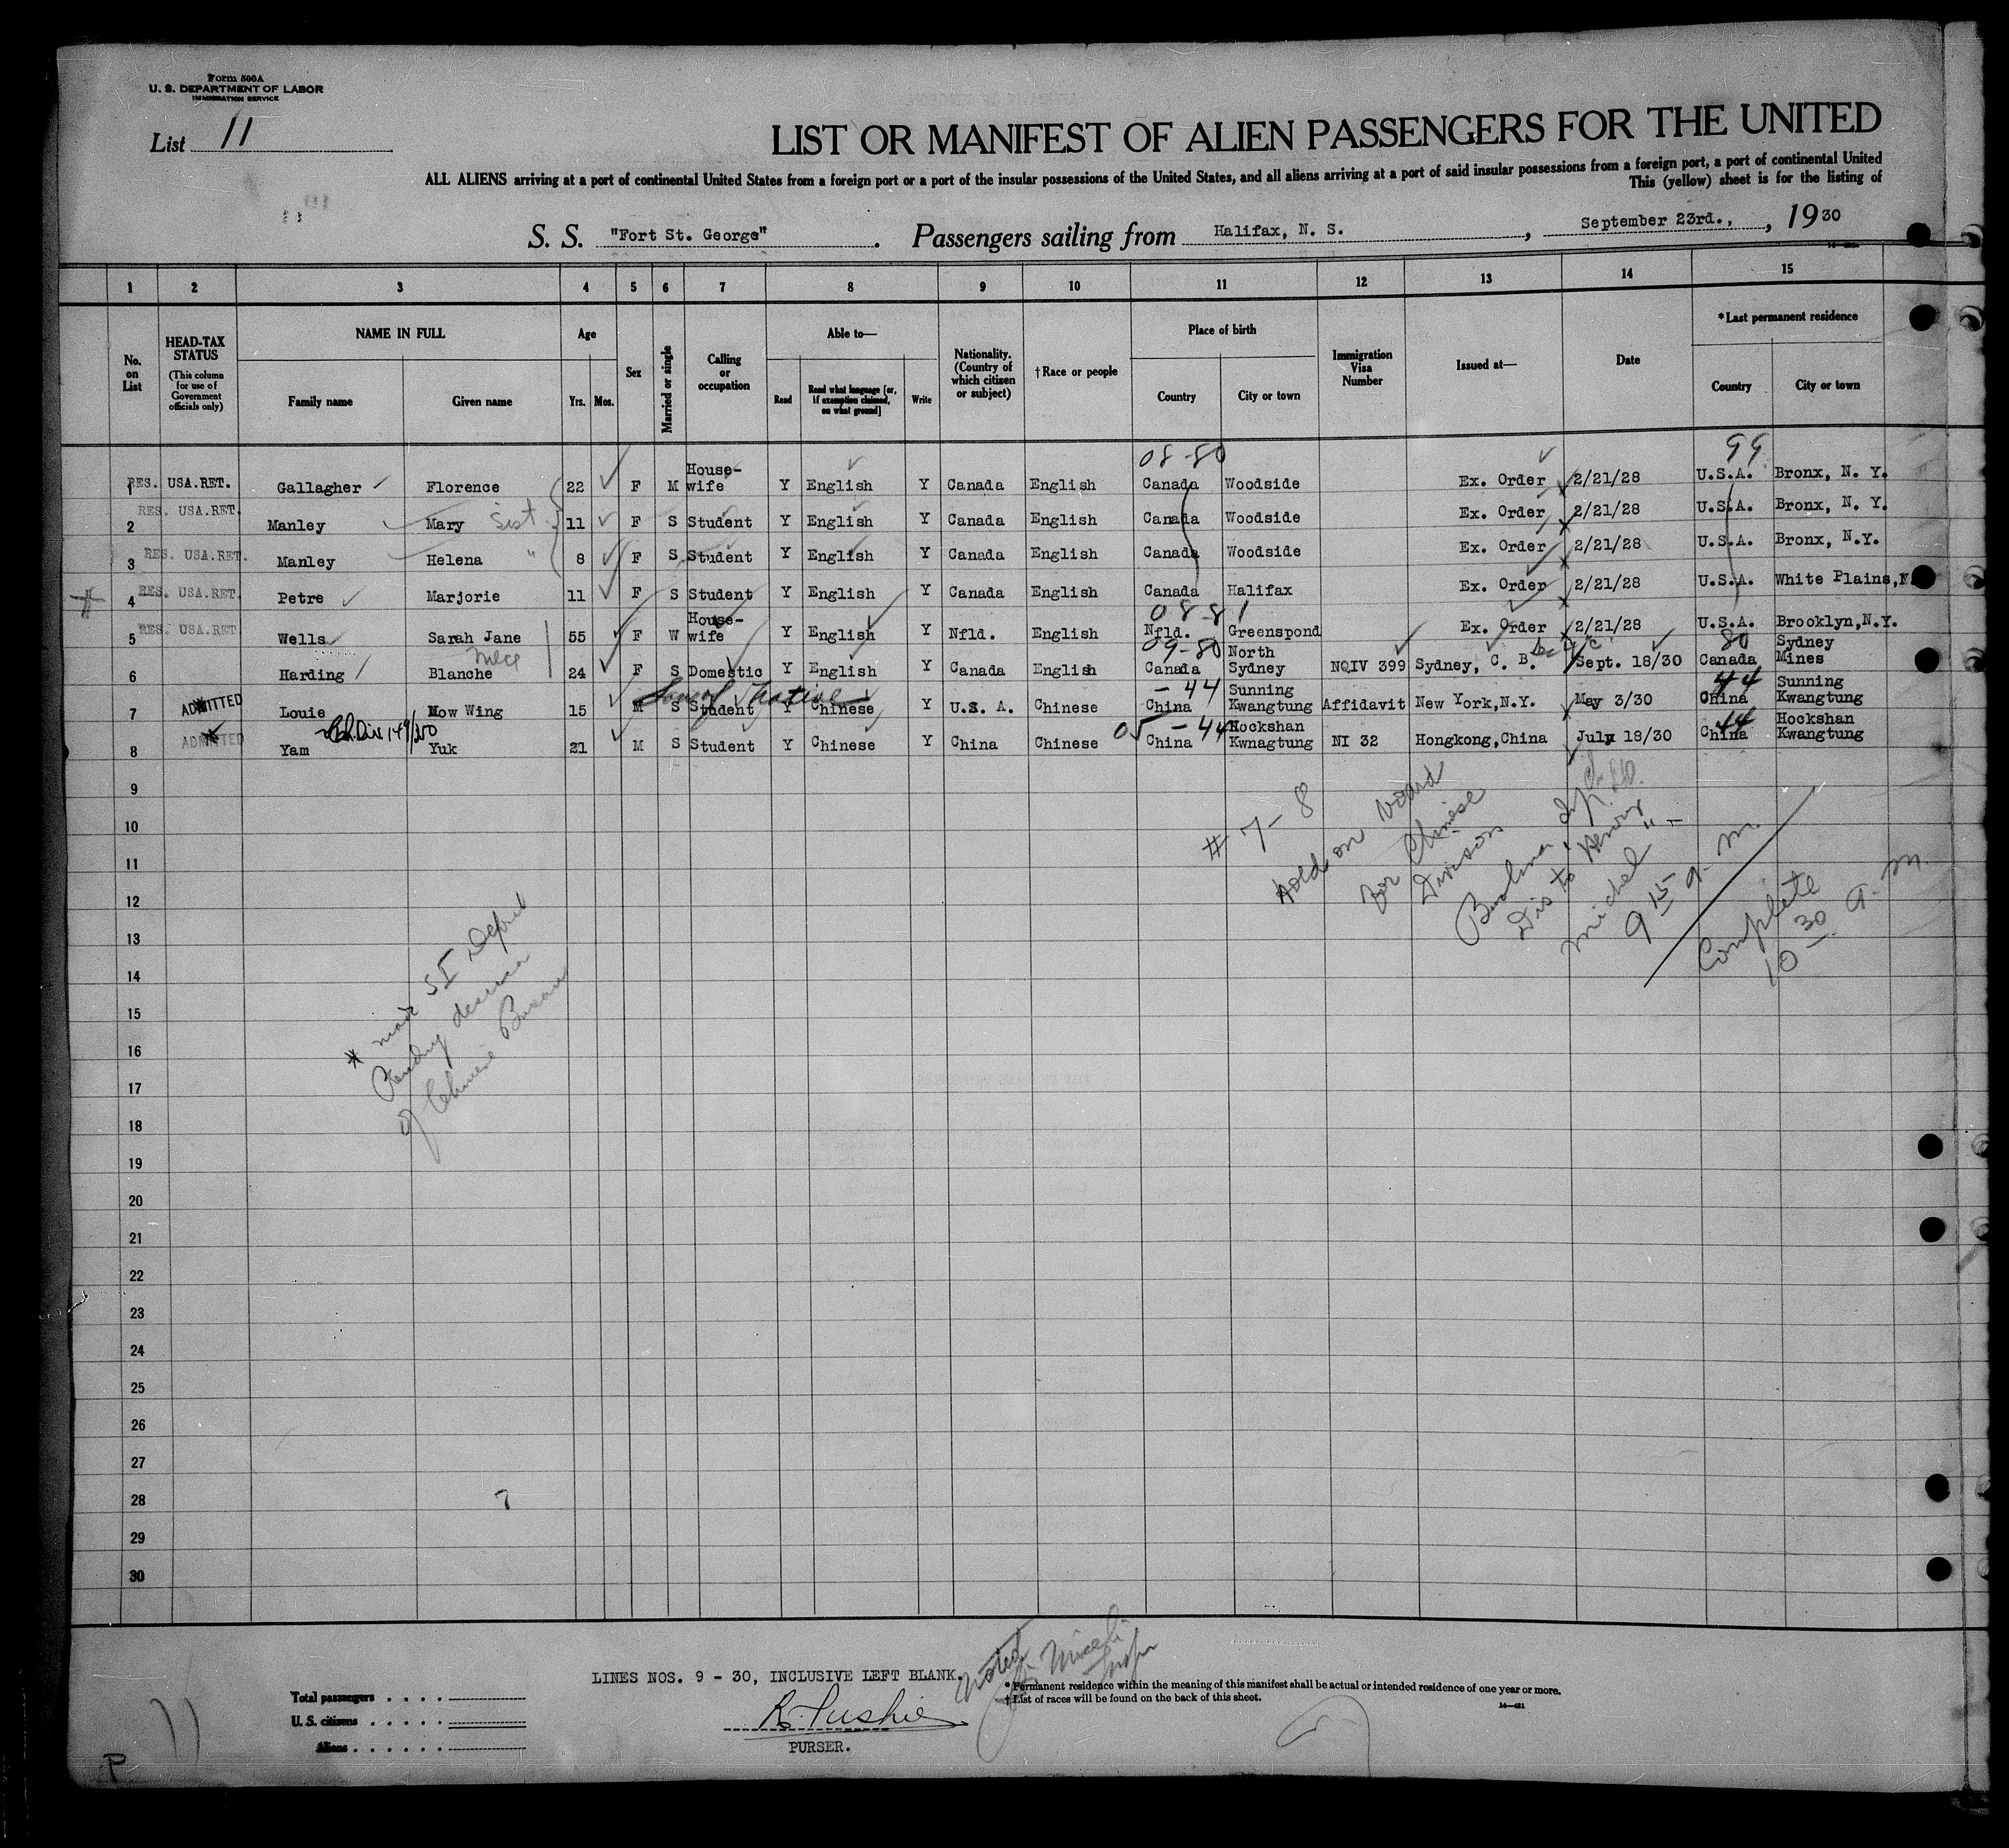 Form 500A
U. S. DEPARTMENT OF LABOR
IMMIGRATION SERVICE
List 11
LIST OR MANIFEST OF ALIEN PASSENGERS FOR THE UNITED
ALL ALIENS arriving at a port of continental United States from a foreign port or a port of the insular possessions of the United States, and all aliens arriving at a port of said insular possessions from a foreign port, a port of continental United
This (yellow) sheet is for the listing of
S. S. "Fort St. George". Passengers sailing from Halifax, N. S., September 23rd., , 1930
1 2 3 4 5 6 7 8 9 10 11 12 13 14 15
No. on List
HEAD-TAX STATUS (This column for use of Government officials only)
NAME IN FULL Family name Given name
Age Yrs. Mos.
Sex
Married or single
Calling or occupation
Able to— Read Read what language [or, if exemption claimed, on what ground] Write
Nationality. (Country of which citizen or subject)
†Race or people
Place of birth Country City or town
Immigration Visa Number
Issued at—
Date
*Last permanent residence Country City or town
08-80 99
1 RES. USA.RET. Gallagher Florence 22 F M House-wife Y English Y Canada English Canada Woodside Ex. Order 2/21/28 U.S.A. Bronx, N. Y.
2 RES. USA.RET. Manley Mary Sist 11 F S Student Y English Y Canada English Canada Woodside Ex. Order 2/21/28 U.S.A. Bronx, N. Y.
3 RES. USA.RET. Manley Helena " 8 F S Student Y English Y Canada English Canada Woodside Ex. Order 2/21/28 U.S.A. Bronx, N.Y.
4 RES. USA.RET. Petre Marjorie 11 F S Student Y English Y Canada English Canada Halifax Ex. Order 2/21/28 U.S.A. White Plains,N.
08-81
5 RES. USA.RET Wells Sarah Jane 55 F W House-wife Y English Y Nfld. English Nfld. Greenspond Ex. Order 2/21/28 U.S.A. Brooklyn,N.Y.
niece 09-80 80
6 Harding Blanche 24 F S Domestic Y English Y Canada English Canada North Sydney NQIV 399 Sydney, C. B. Sept. 18/30 Canada Sydney Mines
Son of Native -44 44
7 ADMITTED Louie Now Wing 15 M S Student Y Chinese Y U.S. A. Chinese China Sunning Kwangtung Affidavit New York,N.Y. May 3/30 China Sunning Kwangtung
Ch. Div 149/250 05 -44 44
8 ADMITTED Yam Yuk 21 M S Student Y Chinese Y China Chinese China Hockshan Kwnagtung NI 32 Hongkong,China July 18/30 China Hockshan Kwangtung
9
10
11
12
13
14
15
16
17
18
19
20
21
22
23
24
25
26
27
28
29
30
# 7-8
Hold on board
for Chinese
Division
Dis to Henry
Michel "-
9 15 a. m.
Complete
10 30 a. m.
* made SI
of Chinese
7
LINES NOS. 9 - 30, INCLUSIVE LEFT BLANK.
Noted
Total passengers
U. S. citizens
Aliens
PURSER.
* Permanent residence within the meaning of this manifest shall be actual or intended residence of one year or more.
† List of races will be found on the back of this sheet.
P